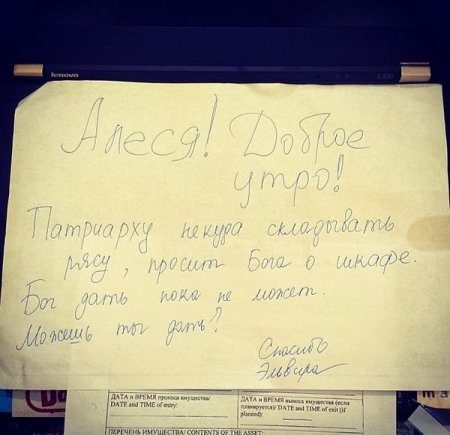 lenovo L420
Алеся! Доброе
утро!
Патриарху некуда складывать
рясу, просит Бога о шкафе.
Бог дать пока не может.
Можешь ты дать?
Спасибо
Эльвира
ДАТА и ВРЕМЯ проноса имущества/
DATE and TIME of entry:
ДАТА и ВРЕМЯ выноса имущества (если
планируется)/ DATE and TIME of exit (if
planned):
ПЕРЕЧЕНЬ ИМУЩЕСТВА/ CONTENTS OF THE ASSET: